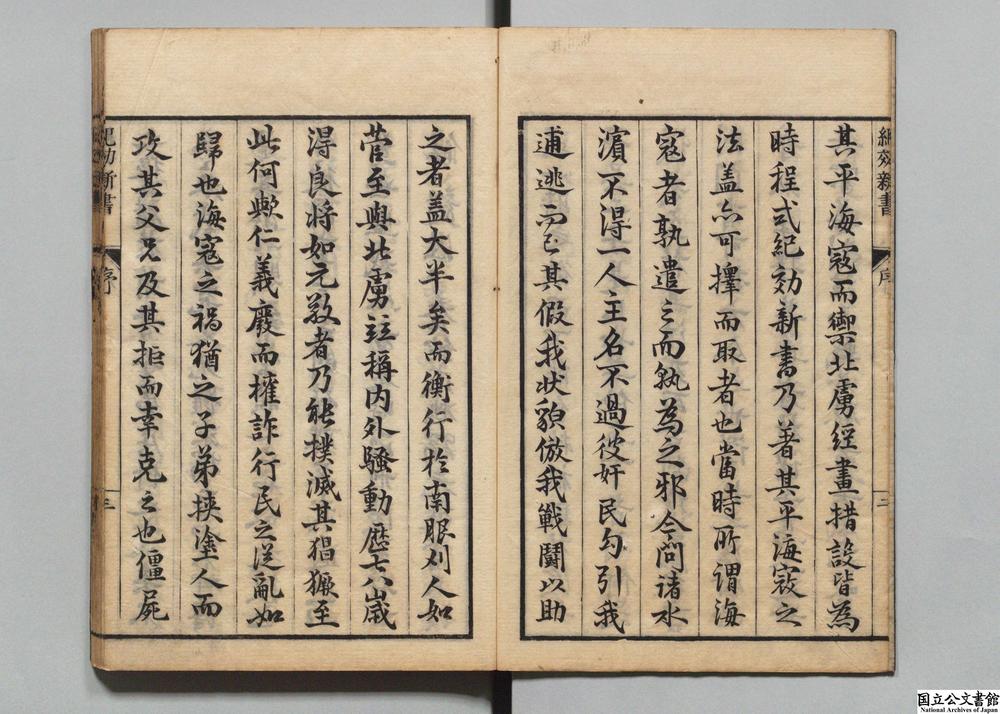 紀效新書
序
二
其平海寇而禦北虜經畫措設皆為
時程式紀効新書乃著其平海寇之
法盖亦可擇而取者也當時所謂海
寇者孰遣之而孰為之邪今問諸水
濵不得一人主名不過彼奸民勾引我
逋逃而已其假我狀貌倣我戰鬪以助
之者盖大半矣而衡行於南服刈人如
菅至與北虜竝稱内外騷動歷七八歲
得良將如元敬者乃能撲滅其猖獗至
此何歟仁義廢而權詐行民之従亂如
歸也海寇之禍猶之子弟挟塗人而
攻其父兄及其拒而幸克之也僵屍
紀効新書
序
三
国立公文書館
National Archives of Japan